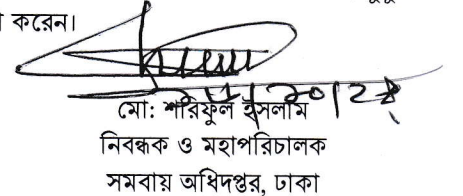 করেন।
মো: শরিফুল ইসলাম
নিবন্ধক ও মহাপরিচালক
সমবায় অধিদপ্তর, ঢাকা